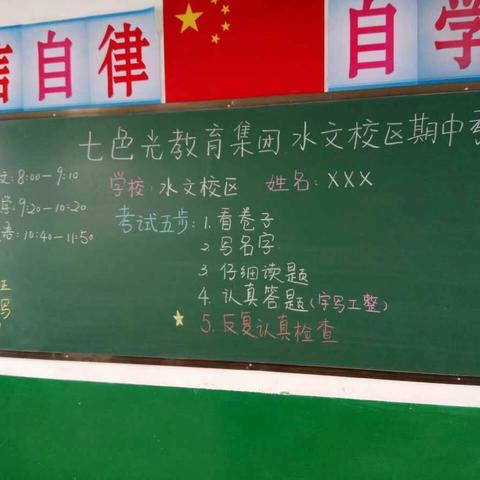 信自律 自学
七色光教育集团水文校区期中考
文:8:00-9:10
学校:水文校区 姓名:XXX
学:9:20-10:20
考试五步:1.看卷子
语:10:40-11:50
2.写名字
3.仔细读题
4.认真答题(字写工整)
写
5.反复认真检查